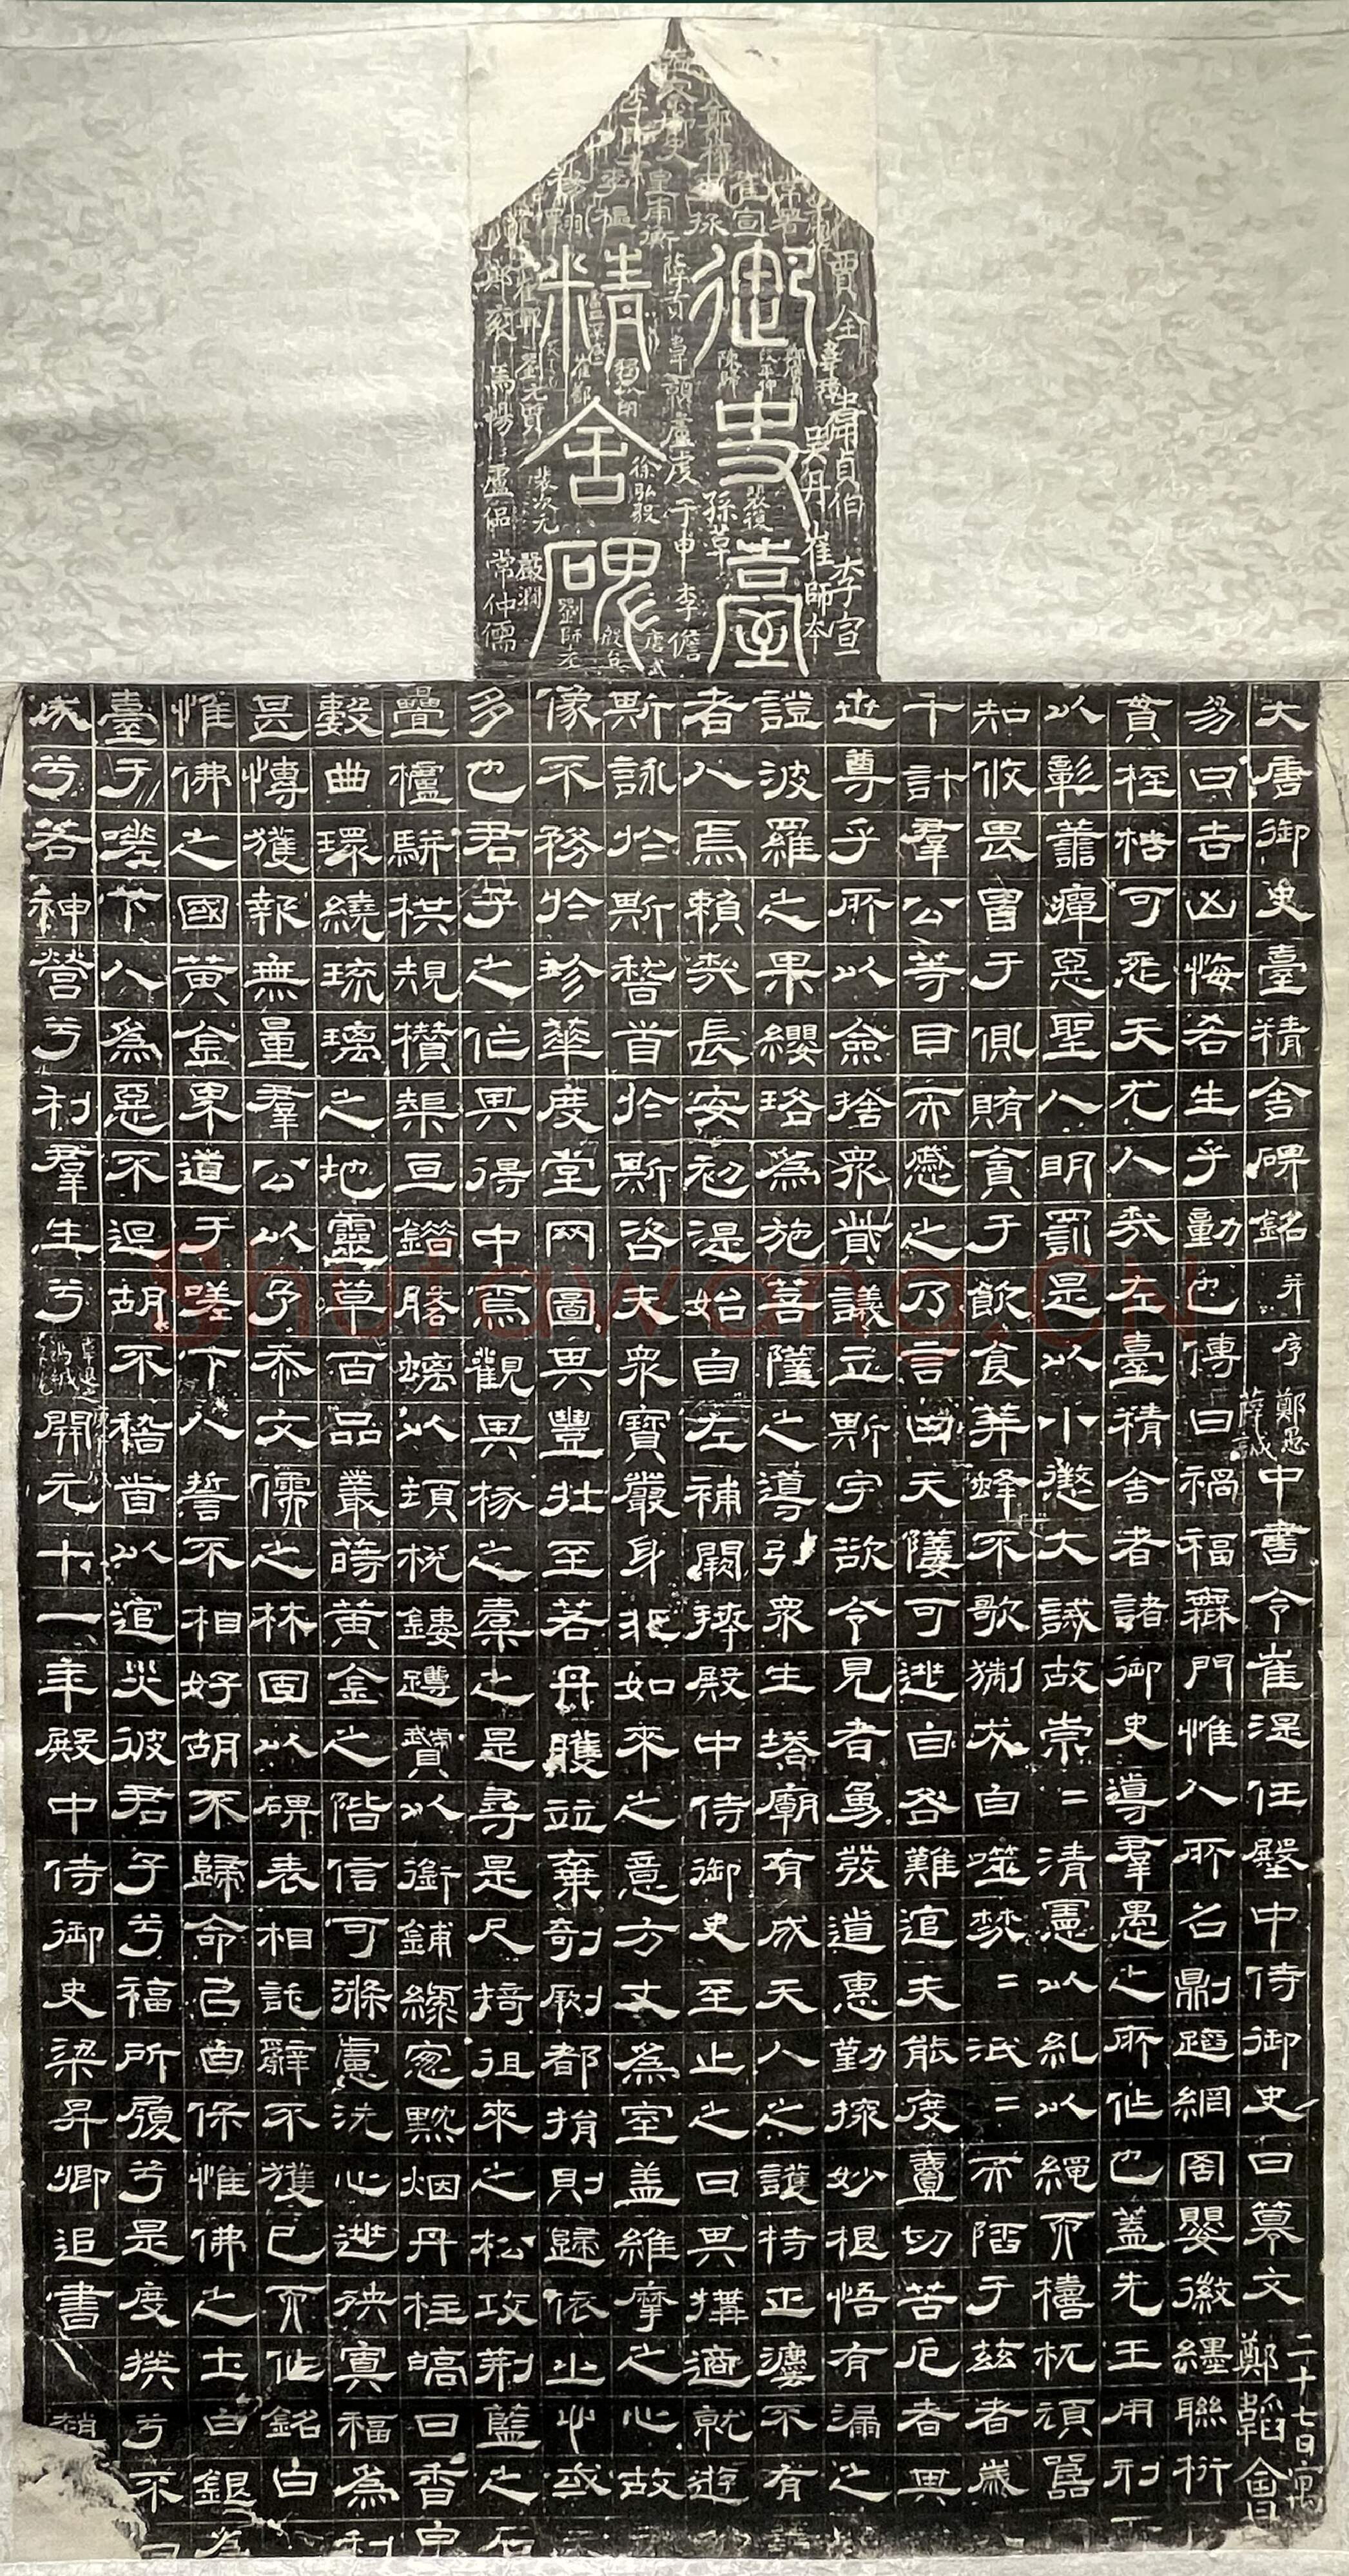 御史臺
精舍碑
賈全
韋貞伯
李宣
吳丹
崔師本
盧虔
于申
李儋
孫革
裴復
徐弘毅
裴次元
嚴澗
馬暢
盧侶
常仲儒
劉元質
劉師老
大唐御史臺精舍碑銘并序 鄭愚 薛誠 中書令崔湜任殿中侍御史日纂文 二十七日 鄭韜
易曰吉凶悔吝生乎動也傳曰禍福無門惟人所召則蹈網罟嬰徽纆聯桁
貫桎梏可怨天尤人哉左臺精舍者諸御史導羣愚之所作也蓋先王用刑
以彰善癉惡聖人明罰是以小懲大誡故崇=清憲以糺以繩而檮杌頑嚚
知攸畏冒于側賄貪于飲食羊蜂不歌猘犬自噬棼=泯=而陷于茲者歲
千計羣公等目而慼之乃言曰天孽可逃自咎難逭夫能度壹切苦厄者其
世尊乎所以僉捨眾貲議立斯宇欲令見者勇發道惠勤探妙根悟有漏之
證波羅之果纓珞為施菩薩之導引眾生塔廟有成天人之護持正法不有
者人焉賴哉長安初湜始自左補闕拜殿中侍御史至止之日其構適就遊
斯詠於斯稽首於斯咨夫眾寶嚴身非如來之意方丈為室盖維摩之心故
像不務於珍華度堂罔圖其豐壯至若丹雘並棄剞劂都捐則歸依止心或
多也君子之作其得中焉觀其椓之橐之是尋是尺掎徂來之松攻荊藍之石
疊櫨駢栱規欑栔亘錯螭以頊棁鏤蹲以銜鋪縹窗黝烟丹柱皜日香泉
數曲環繞琉璃之地靈草百品叢蒔黃金之階信可滌慮洗心逃殃寘福為利
甚博獲報無量羣公以予忝文儒之林固以碑表相託辭不獲已而作銘曰
惟佛之國黃金界道于嗟卞人誓不相好胡不歸命己酉保惟佛之土白銀為
臺于嗟卞人為惡不迴胡不稽首以逭災彼君子兮福所履兮是度揆兮不日
成兮若神營兮利羣生兮 開元十一年殿中侍御史梁昇卿追書 趙
Shutawang.CN